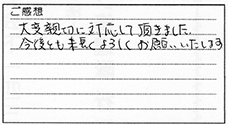 ご感想
大変親切に対応して頂きました
今後とも末長くよろしくお願いいたします